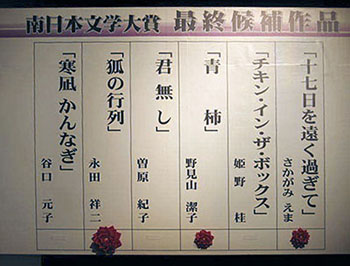 南日本文学大賞 最終候補作品
「十七日を遠く過ぎて」
さかがみ えま
「チキン・イン・ザ・ボックス」
姫野 桂
「青柿」
野見山 潔子
「君無し」
曽原 紀子
「狐の行列」
永田 祥二
「寒凪 かんなぎ」
谷口 元子